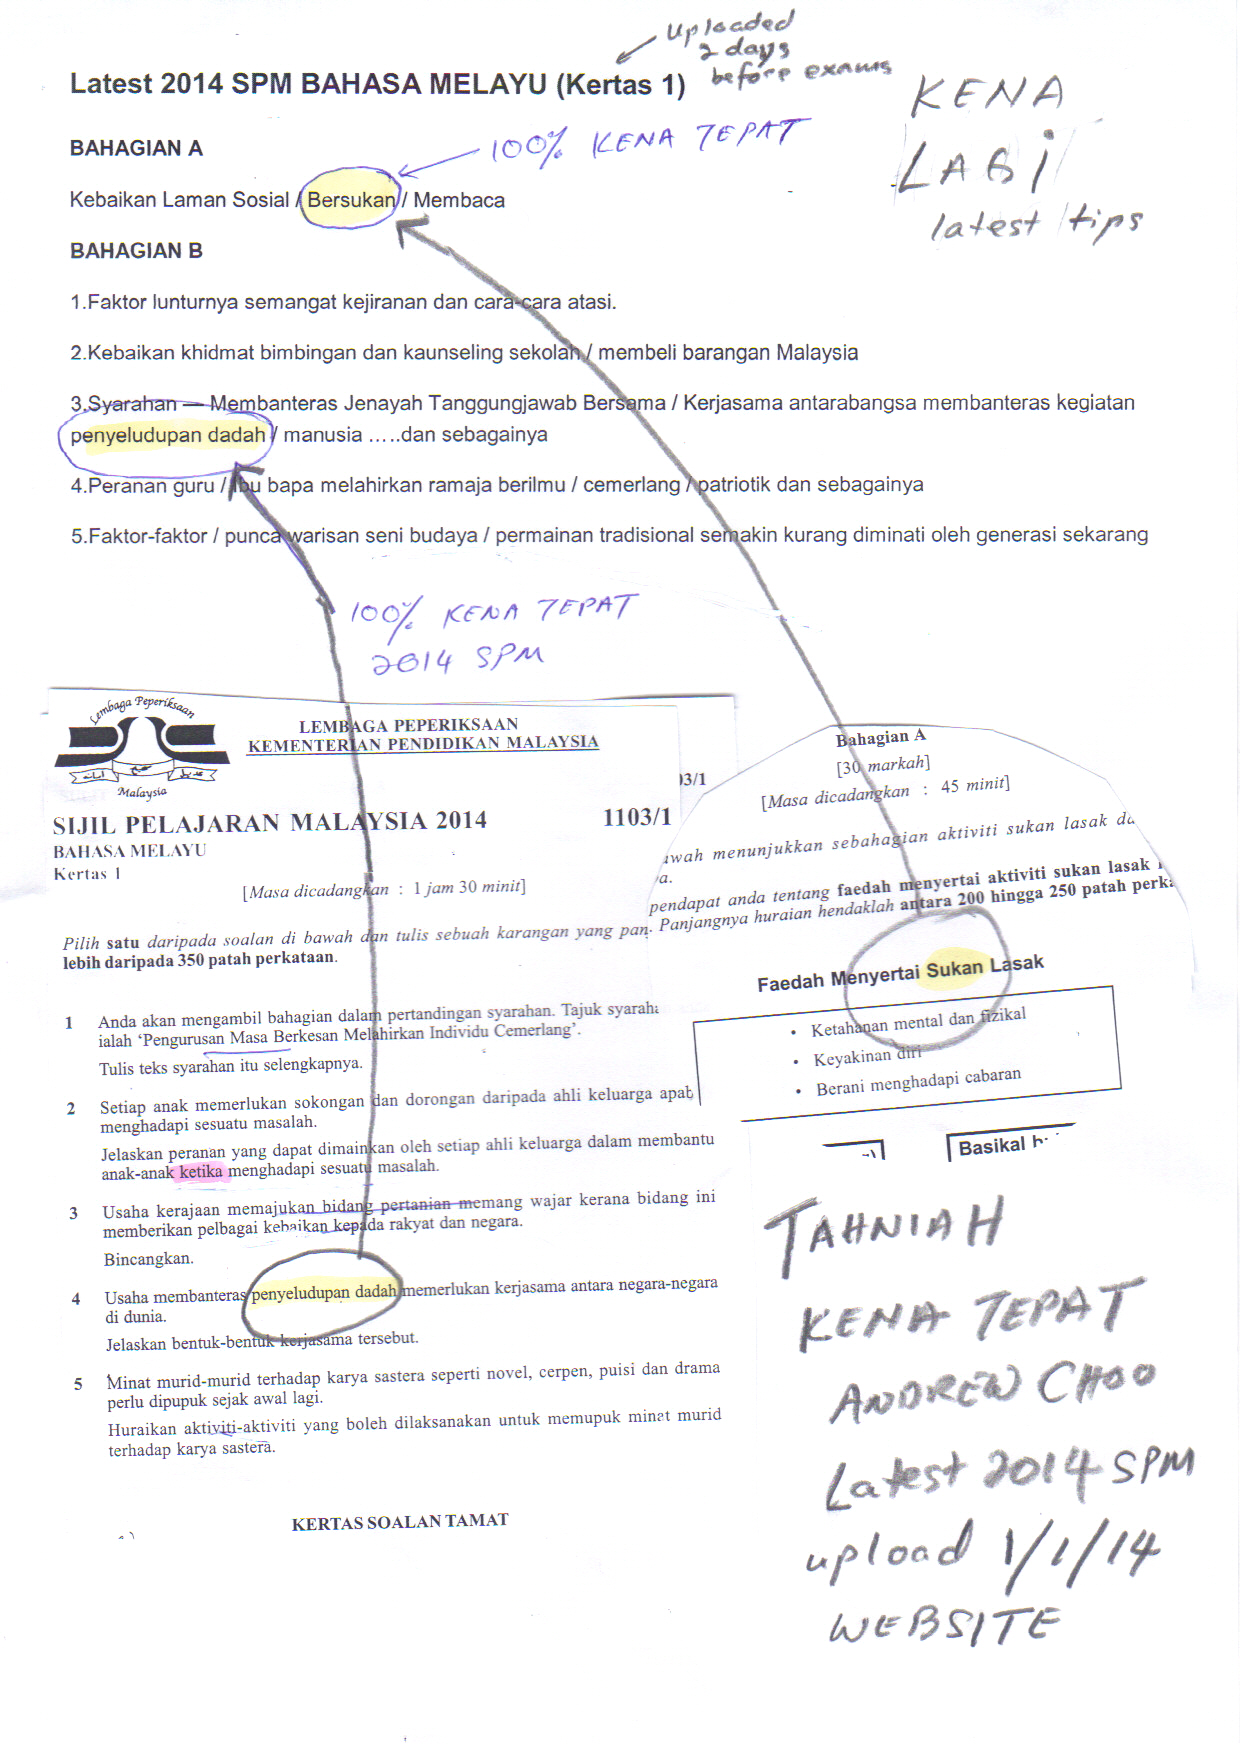 uploaded
2 days
before exams
Latest 2014 SPM BAHASA MELAYU (Kertas 1)
KENA
LAGi
latest tips
BAHAGIAN A
100% KENA TEPAT
Kebaikan Laman Sosial / Bersukan / Membaca
BAHAGIAN B
1.Faktor lunturnya semangat kejiranan dan cara-cara atasi.
2.Kebaikan khidmat bimbingan dan kaunseling sekolah / membeli barangan Malaysia
3.Syarahan — Membanteras Jenayah Tanggungjawab Bersama / Kerjasama antarabangsa membanteras kegiatan
penyeludupan dadah / manusia .....dan sebagainya
4.Peranan guru / Ibu bapa melahirkan ramaja berilmu / cemerlang / patriotik dan sebagainya
5.Faktor-faktor / punca warisan seni budaya / permainan tradisional semakin kurang diminati oleh generasi sekarang
100% KENA TEPAT
2014 SPM
Lembaga Peperiksaan
Malaysia
LEMBAGA PEPERIKSAAN
KEMENTERIAN PENDIDIKAN MALAYSIA
03/1
SIJIL PELAJARAN MALAYSIA 2014 1103/1
BAHASA MELAYU
Kertas 1
[Masa dicadangkan : 1 jam 30 minit]
Pilih satu daripada soalan di bawah dan tulis sebuah karangan yang pan
lebih daripada 350 patah perkataan.
1 Anda akan mengambil bahagian dalam pertandingan syarahan. Tajuk syaraha
ialah ‘Pengurusan Masa Berkesan Melahirkan Individu Cemerlang’.
Tulis teks syarahan itu selengkapnya.
2 Setiap anak memerlukan sokongan dan dorongan daripada ahli keluarga apab
menghadapi sesuatu masalah.
Jelaskan peranan yang dapat dimainkan oleh setiap ahli keluarga dalam membantu
anak-anak ketika menghadapi sesuatu masalah.
3 Usaha kerajaan memajukan bidang pertanian memang wajar kerana bidang ini
memberikan pelbagai kebaikan kepada rakyat dan negara.
Bincangkan.
4 Usaha membanteras penyeludupan dadah memerlukan kerjasama antara negara-negara
di dunia.
Jelaskan bentuk-bentuk kerjasama tersebut.
5 Minat murid-murid terhadap karya sastera seperti novel, cerpen, puisi dan drama
perlu dipupuk sejak awal lagi.
Huraikan aktiviti-aktiviti yang boleh dilaksanakan untuk memupuk minat murid
terhadap karya sastera.
KERTAS SOALAN TAMAT
Bahagian A
[30 markah]
[Masa dicadangkan : 45 minit]
awah menunjukkan sebahagian aktiviti sukan lasak da
a.
pendapat anda tentang faedah menyertai aktiviti sukan lasak
Panjangnya huraian hendaklah antara 200 hingga 250 patah perka
Faedah Menyertai Sukan Lasak
• Ketahanan mental dan fizikal
• Keyakinan diri
• Berani menghadapi cabaran
Basikal
TAHNIAH
KENA TEPAT
ANDREW CHOO
Latest 2014 SPM
upload 1/1/14
WEBSITE